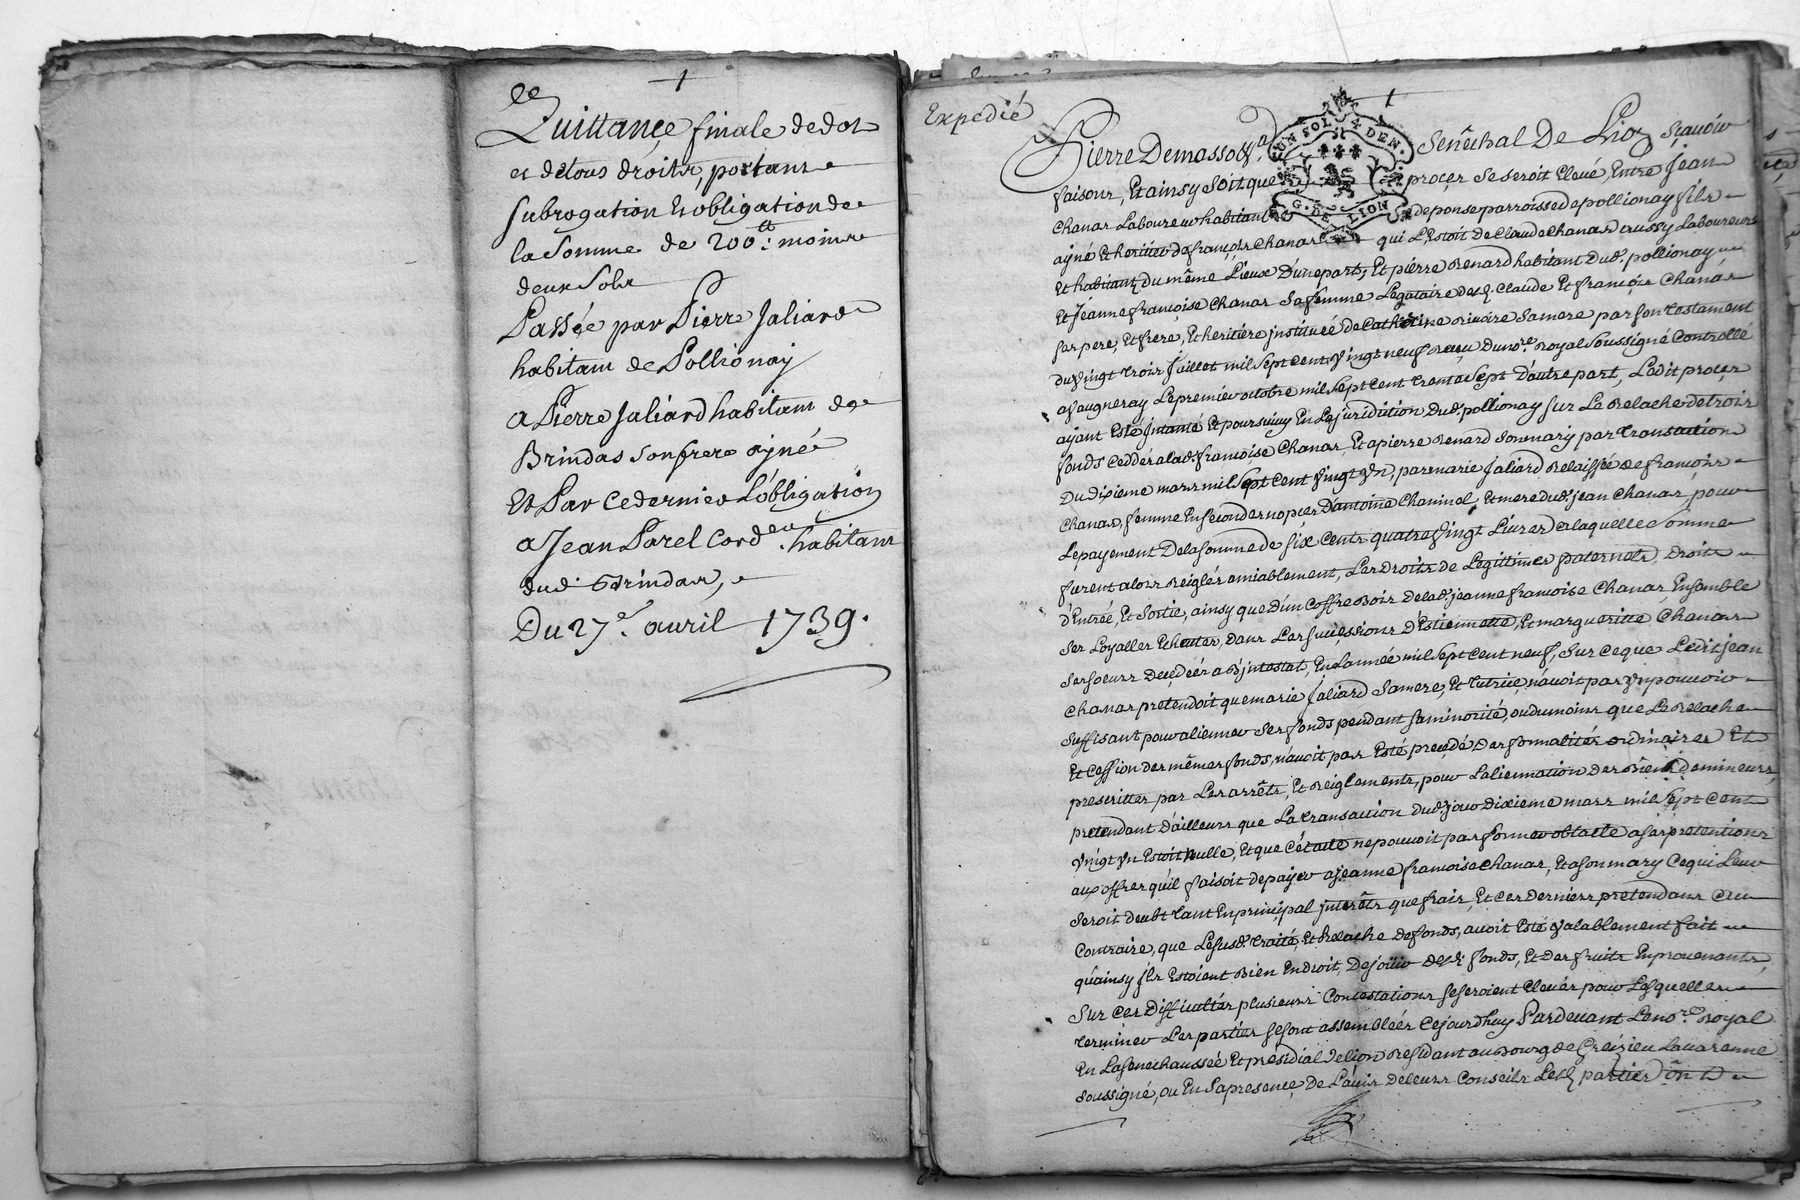 Quittance finale de dot
et detous droits, portant
subrogation et obligation de
la somme de 200ₜₜ: moins
deux sols
Passée par Pierre Jaliard
habitant de Pollionay
a Pierre Jaliard habitant de
Brindas son frere ayné
Et Par ce dernier L'obligation
a Jean Parel Cord.er habitant
dud. Brindas,
Du 27e. avril 1739.
Expedié
UN SOL 4 DEN.
G. DE LION
Pierre Demasso Senêchal De Lion sçavoir
faisons, Et ainsy soit que proçes se seroit Elevé, Entre Jean
Chanas Laboureur habitant parroisse de pollionay fils
ayné Et heritier de françois Chanas qui L'Estoit De Claude Chanas aussy Laboureur
Et habitant du même Lieux D'une part, Et pierre Renard habitant Dud. pollionay
Et Jeanne françoise Chanas Sa femme Legataire desd. Claude Et françois Chanas
ses pere, Et frere, Et heritiere instituée de Catherine Samere par son testament
du vingt trois Juillet mil sept cent vingt neuf Reçu Du no.re Royal soussigné Controllé
a Vaugneray Le premier octobre mil sept cent trente sept D'autre part, Ledit proçes
ayant Esté Intanté Et poursuivy En La juridition Dud. pollionay sur Le Relache de trois
fonds Ceddés a lad. françoise Chanas Et a pierre Renard son mary par transaction
Du dixieme mars mil sept cent vingt un, par marie Jaliard Relaissée de françois
Chanas, femme En secondes nopces D'antoine Chaninel Et mere dud. jean Chanas, pour
Le payement De la somme de six cents quatre vingt Livres a laquelle somme
furent alors Reiglés amiablement, Les Droits de Legittimes paternels, Droits
d'Entrée, Et Sortie, ainsy que D'un Coffre Bois De lad. jeanne françoise Chanas, Ensemble
ses Loyalles Echeutes, Dans Les suceçsions D'Estiennette, Et margueritte Chanas
ses soeurs Deçedées abjntestat, En L'année mil sept cent neuf, sur ce que Ledit jean
Chanas pretendoit que marie Jaliard samere, Et tutrice, n'avoit pas un pouvoir
suffisant pour aliener ses fonds pendant sa minorité, ou du moins que Le Relache
Et Cession des mêmes fonds, n'avoit pas Esté precedé Des formalités ordinaires Et
prescrittes par Les arrêts, Et Reiglements, pour L'alienation Des Biens de mineurs,
pretendant D'ailleurs que La transaction Dud. jour Dixieme mars mil sept cent
vingt un Estoit nulle, Et que Cet acte ne pouvoit pas former obtacle a ses pretentions
aux offres qu'il faisoit de payer a jeanne françoise Chanas, Et a son mary Ce qui Leur
seroit deubt tant En principal interêts que frais, Et Ces Derniers pretendans au
Contraire, que Lesusd. traité, Et Relache De fonds, avoit Esté valablement fait
qu'ainsy ils Estoient Bien En droit, De joüir desd. fonds, Et Des fruits En provenants,
Sur Ces Difficultés plusieurs Contestations se seroient Elevés pour Lesquelles
terminer Les parties se sont assemblées Cejourdhuy Pardevant Le no.re Royal
En La senechaussée Et présidial De Lion Residant au Bourg de Greizieu La varenne
soussigné, ou En Sapresence, De L'avis De leurs Conseils Lesd. parties ont